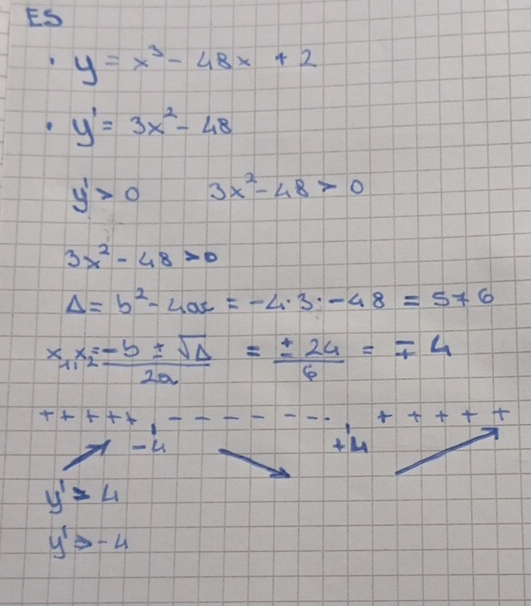 ES
• y = x³ - 48x + 2
• y' = 3x² - 48
y' > 0 3x² - 48 > 0
3x² - 48 > 0
Δ = b² - 4ac = -4·3·-48 = 576
x₁,x₂ = -b ± √Δ / 2a = ± 24 / 6 = ∓ 4
+ + + + + - - - - - - - . + + + + +
-4 +4
y' > 4
y' > -4